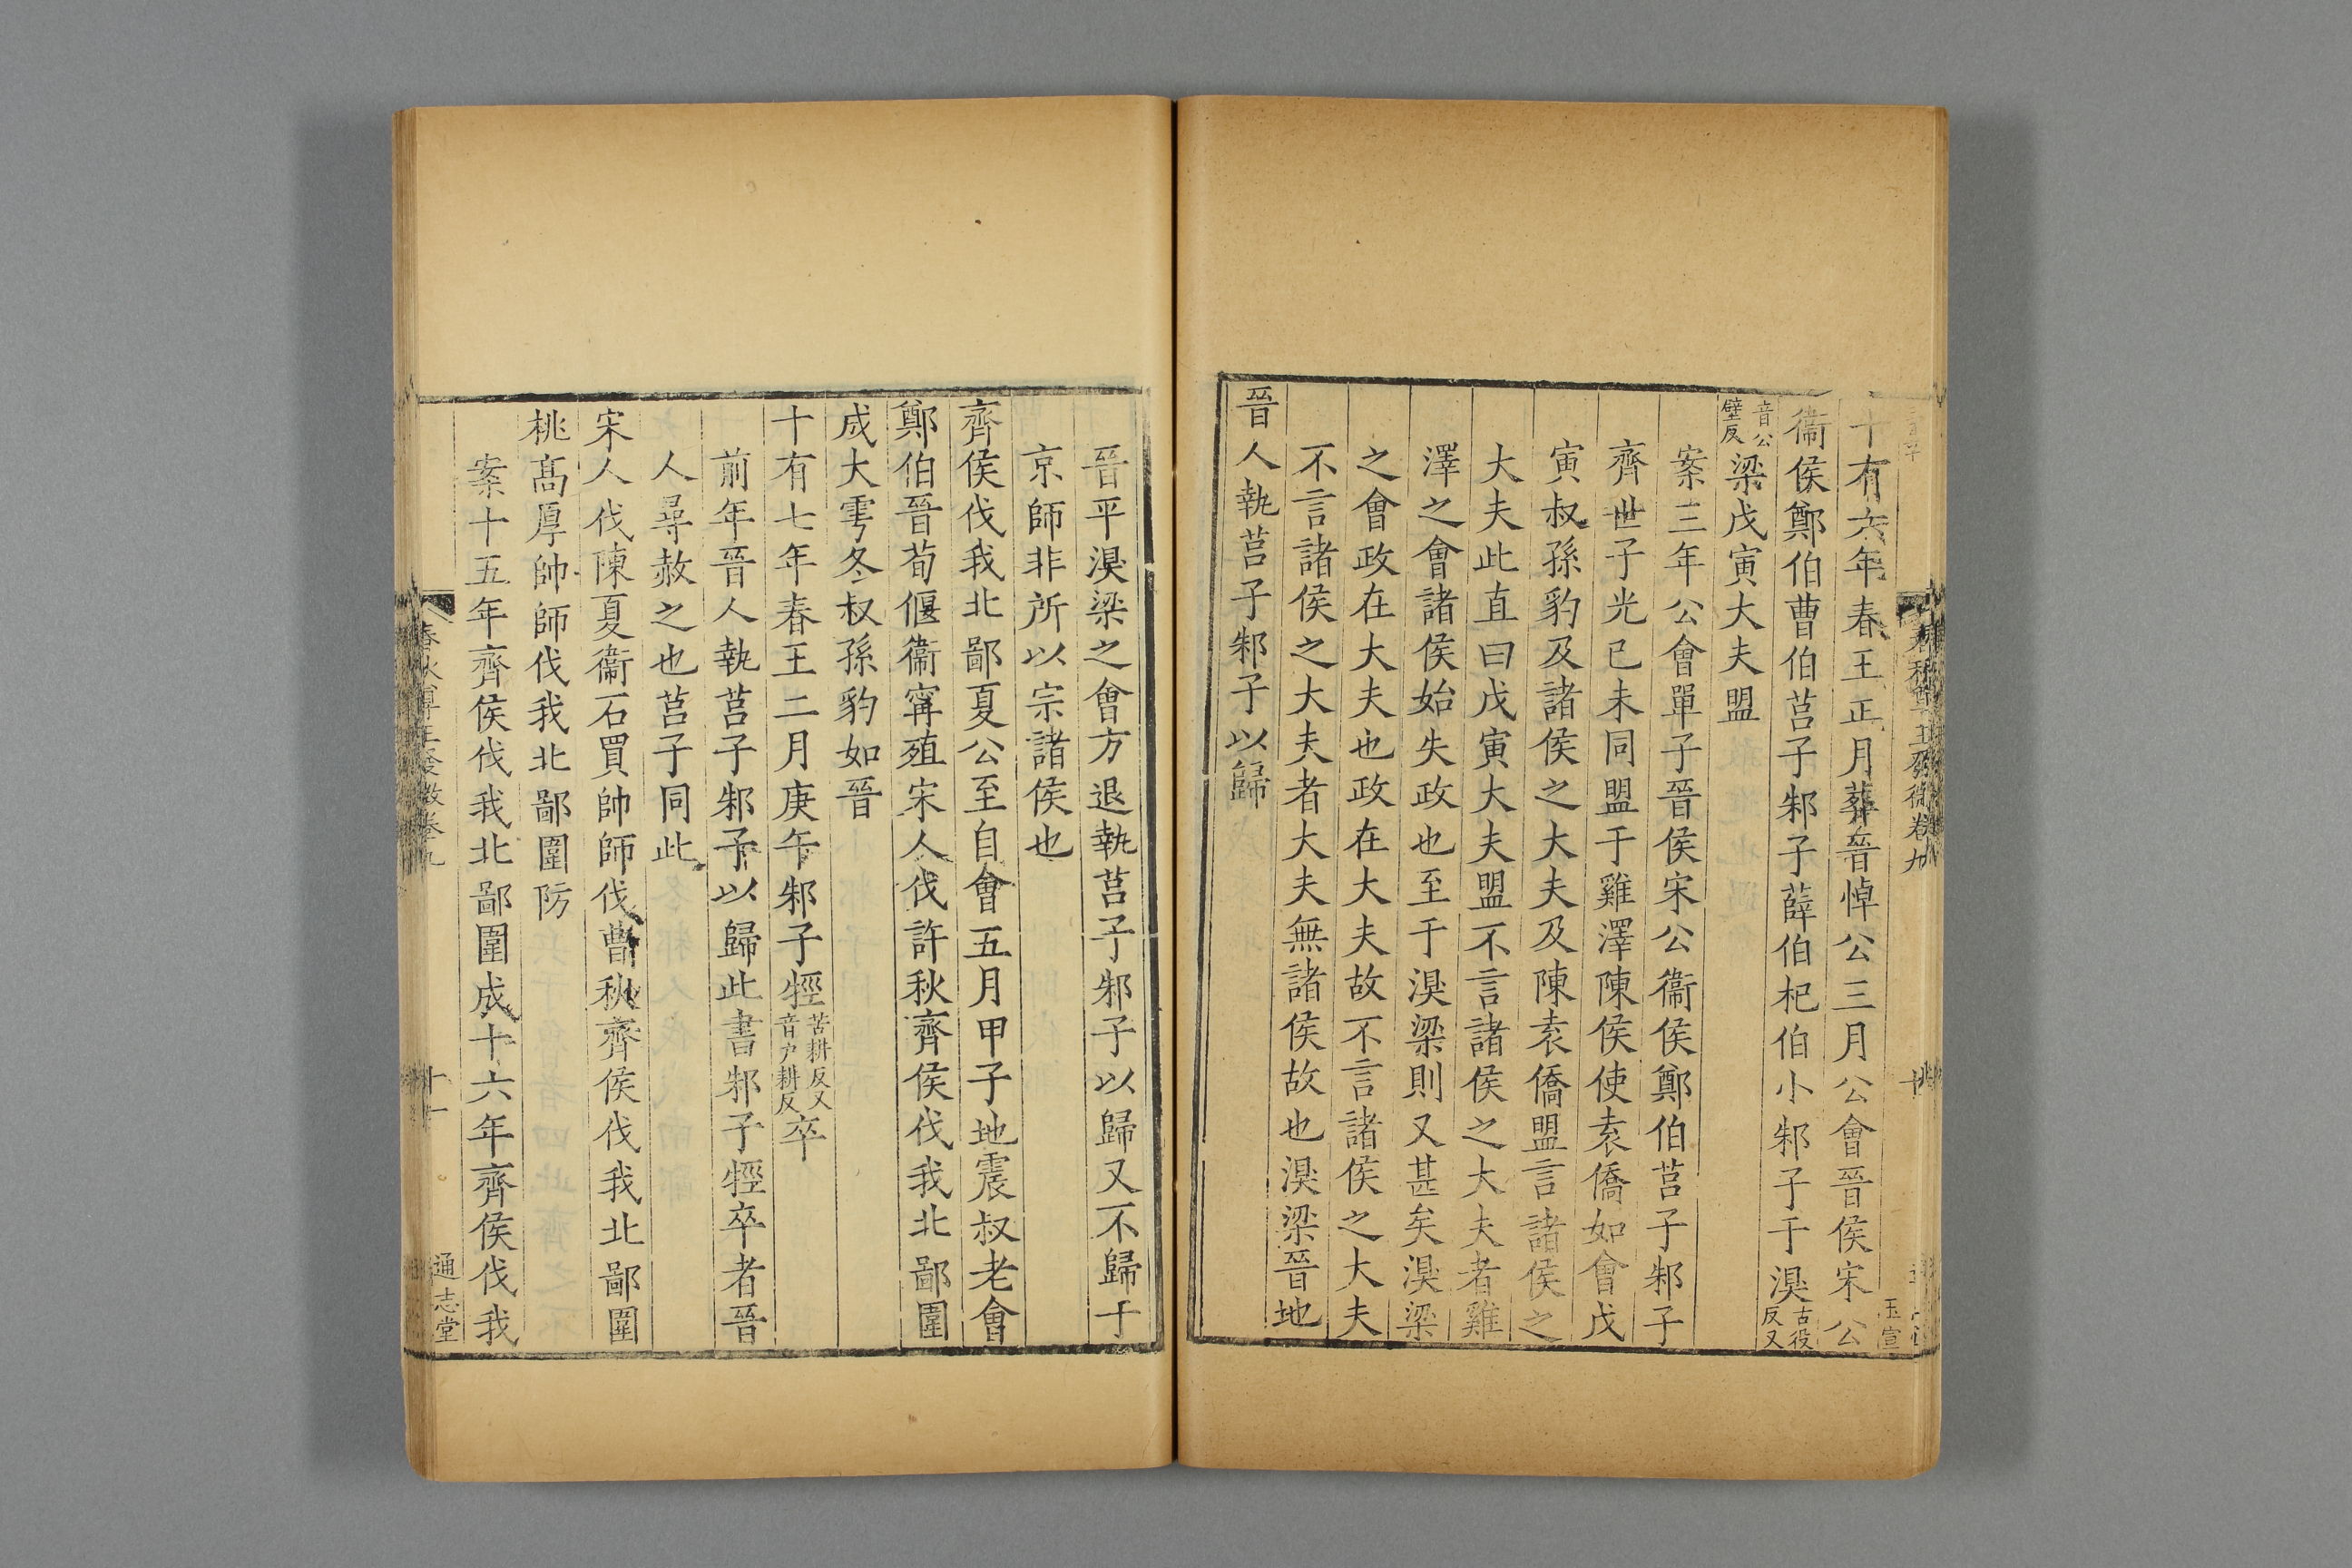 春秋尊王發微卷九
十
玉宣
十有六年春王正月葬晉悼公三月公會晉侯宋公
衞侯鄭伯曹伯莒子邾子薛伯杞伯小邾子于溴古役反又
音公壁反梁戊寅大夫盟
案三年公會單子晉侯宋公衞侯鄭伯莒子邾子
齊世子光已未同盟于雞澤陳侯使袁僑如會戊
寅叔孫豹及諸侯之大夫及陳袁僑盟言諸侯之
大夫此直曰戊寅大夫盟不言諸侯之大夫者雞
澤之會諸侯始失政也至于溴梁則又甚矣溴梁
之會政在大夫也政在大夫故不言諸侯之大夫
不言諸侯之大夫者大夫無諸侯故也溴梁晉地
晉人執莒子邾子以歸
晉平溴梁之會方退執莒子邾子以歸又不歸于
京師非所以宗諸侯也
齊侯伐我北鄙夏公至自會五月甲子地震叔老會
鄭伯晉荀偃衞甯殖宋人伐許秋齊侯伐我北鄙圍
成大雩冬叔孫豹如晉
十有七年春王二月庚午邾子牼苦耕反又音户耕反卒
前年晉人執莒子邾子以歸此書邾子牼卒者晉
人尋赦之也莒子同此
宋人伐陳夏衞石買帥師伐曹秋齊侯伐我北鄙圍
桃高厚帥師伐我北鄙圍防
案十五年齊侯伐我北鄙圍成十六年齊侯伐我
春秋尊王發微卷九
十一
通志堂